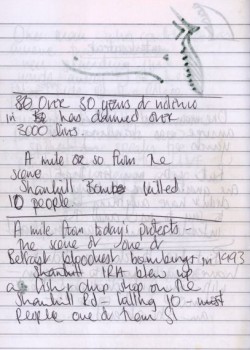 Over 30 years of violence
in has claimed over
3000 lives.
A mile or so from the
scene
Shankill Bomb killed
10 people
A mile from today's protests -
the scene of one of
Belfast bloodiest bombings in 1993
Shankill IRA blew up
a fish & chip shop on the
Shankill Rd - killing 10 - most
people one of them